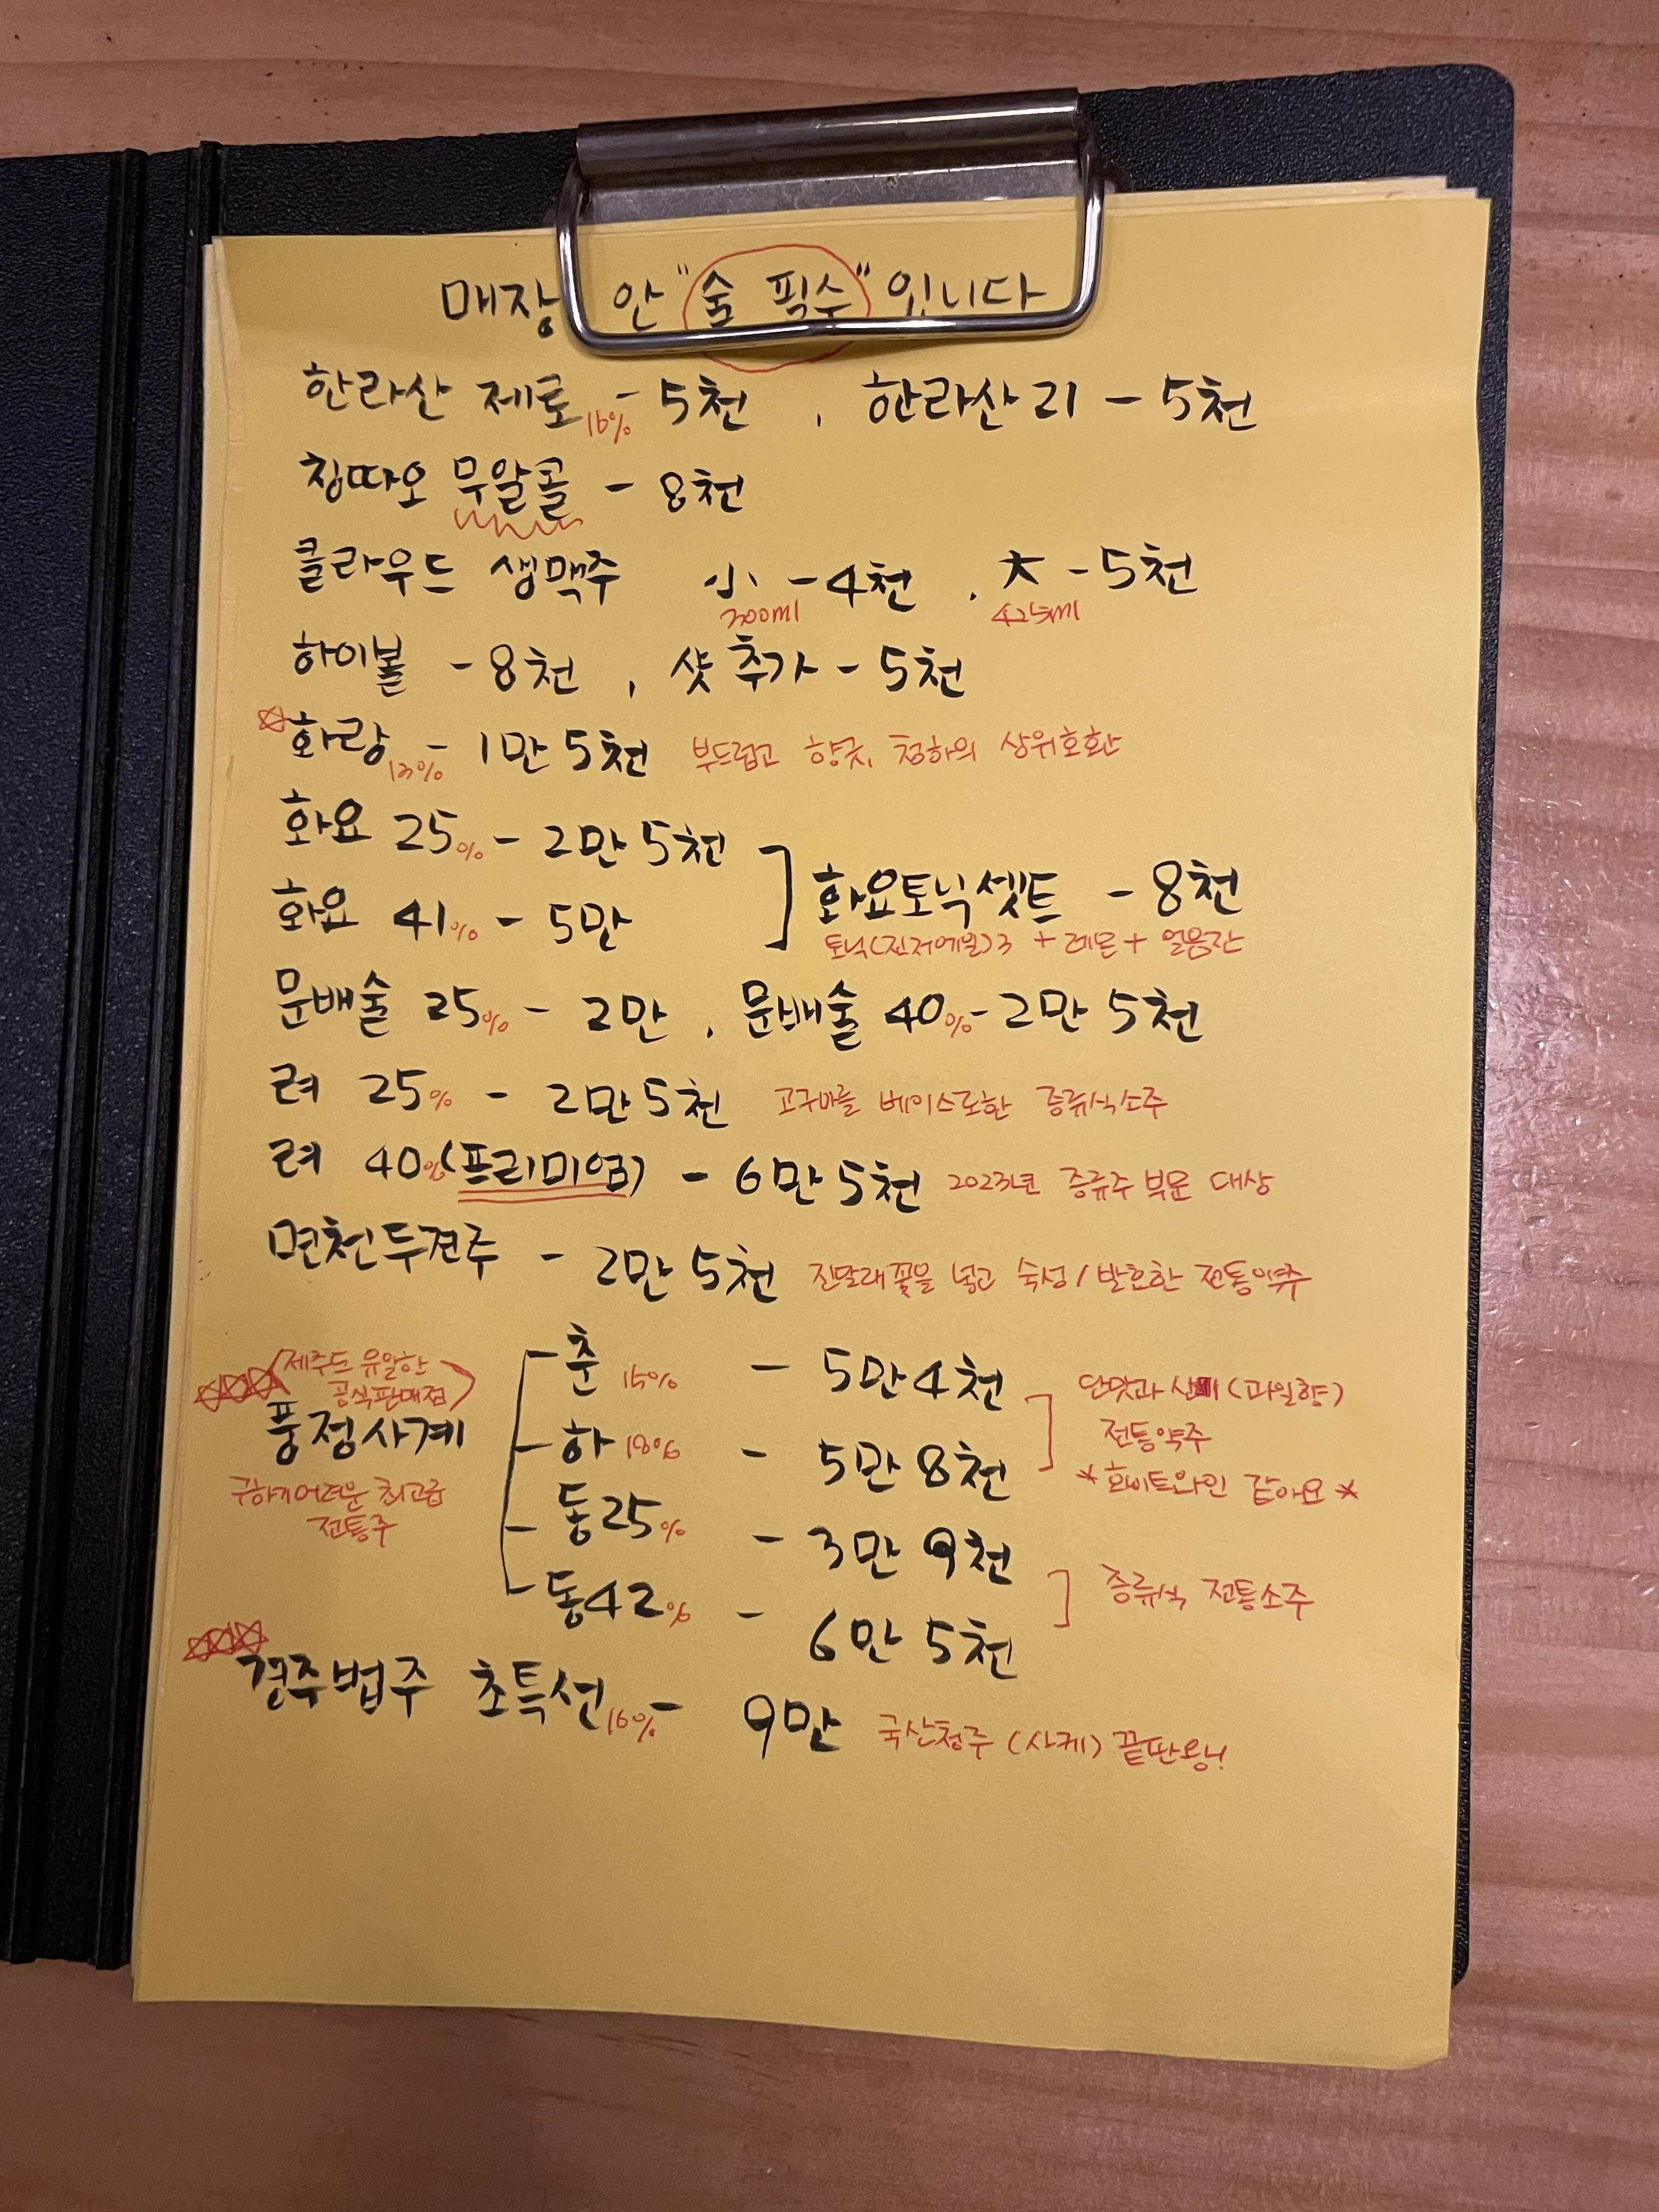 매장 안 "술 필수" 입니다
한라산 제로 16% - 5천 , 한라산 21 - 5천
칭따오 무알콜 - 8천
클라우드 생맥주 小 300ml - 4천 , 大 425ml - 5천
하이볼 - 8천 , 샷 추가 - 5천
화랑 13% - 1만 5천 부드럽고 향긋, 청하의 상위호환
화요 25% - 2만 5천
화요 41% - 5만
화요토닉셋트 - 8천
토닉(진저에일)3 + 레몬 + 얼음잔
문배술 25% - 2만 , 문배술 40% - 2만 5천
려 25% - 2만 5천 고구마를 베이스로한 증류식소주
려 40%(프리미엄) - 6만 5천 2023년 증류주 부문 대상
면천두견주 - 2만 5천 진달래꽃을 넣고 숙성/발효한 전통약주
제주도 유일한
공식판매점
풍정사계
구하기어려운 최고급
전통주
춘 15% - 5만 4천
하 18% - 5만 8천
단맛과 산미 (과일향)
전통약주
*화이트와인 같아요*
동25% - 3만 9천
동42% - 6만 5천
증류식 전통소주
경주법주 초특선 16% - 9만 국산청주 (사케) 끝판왕!